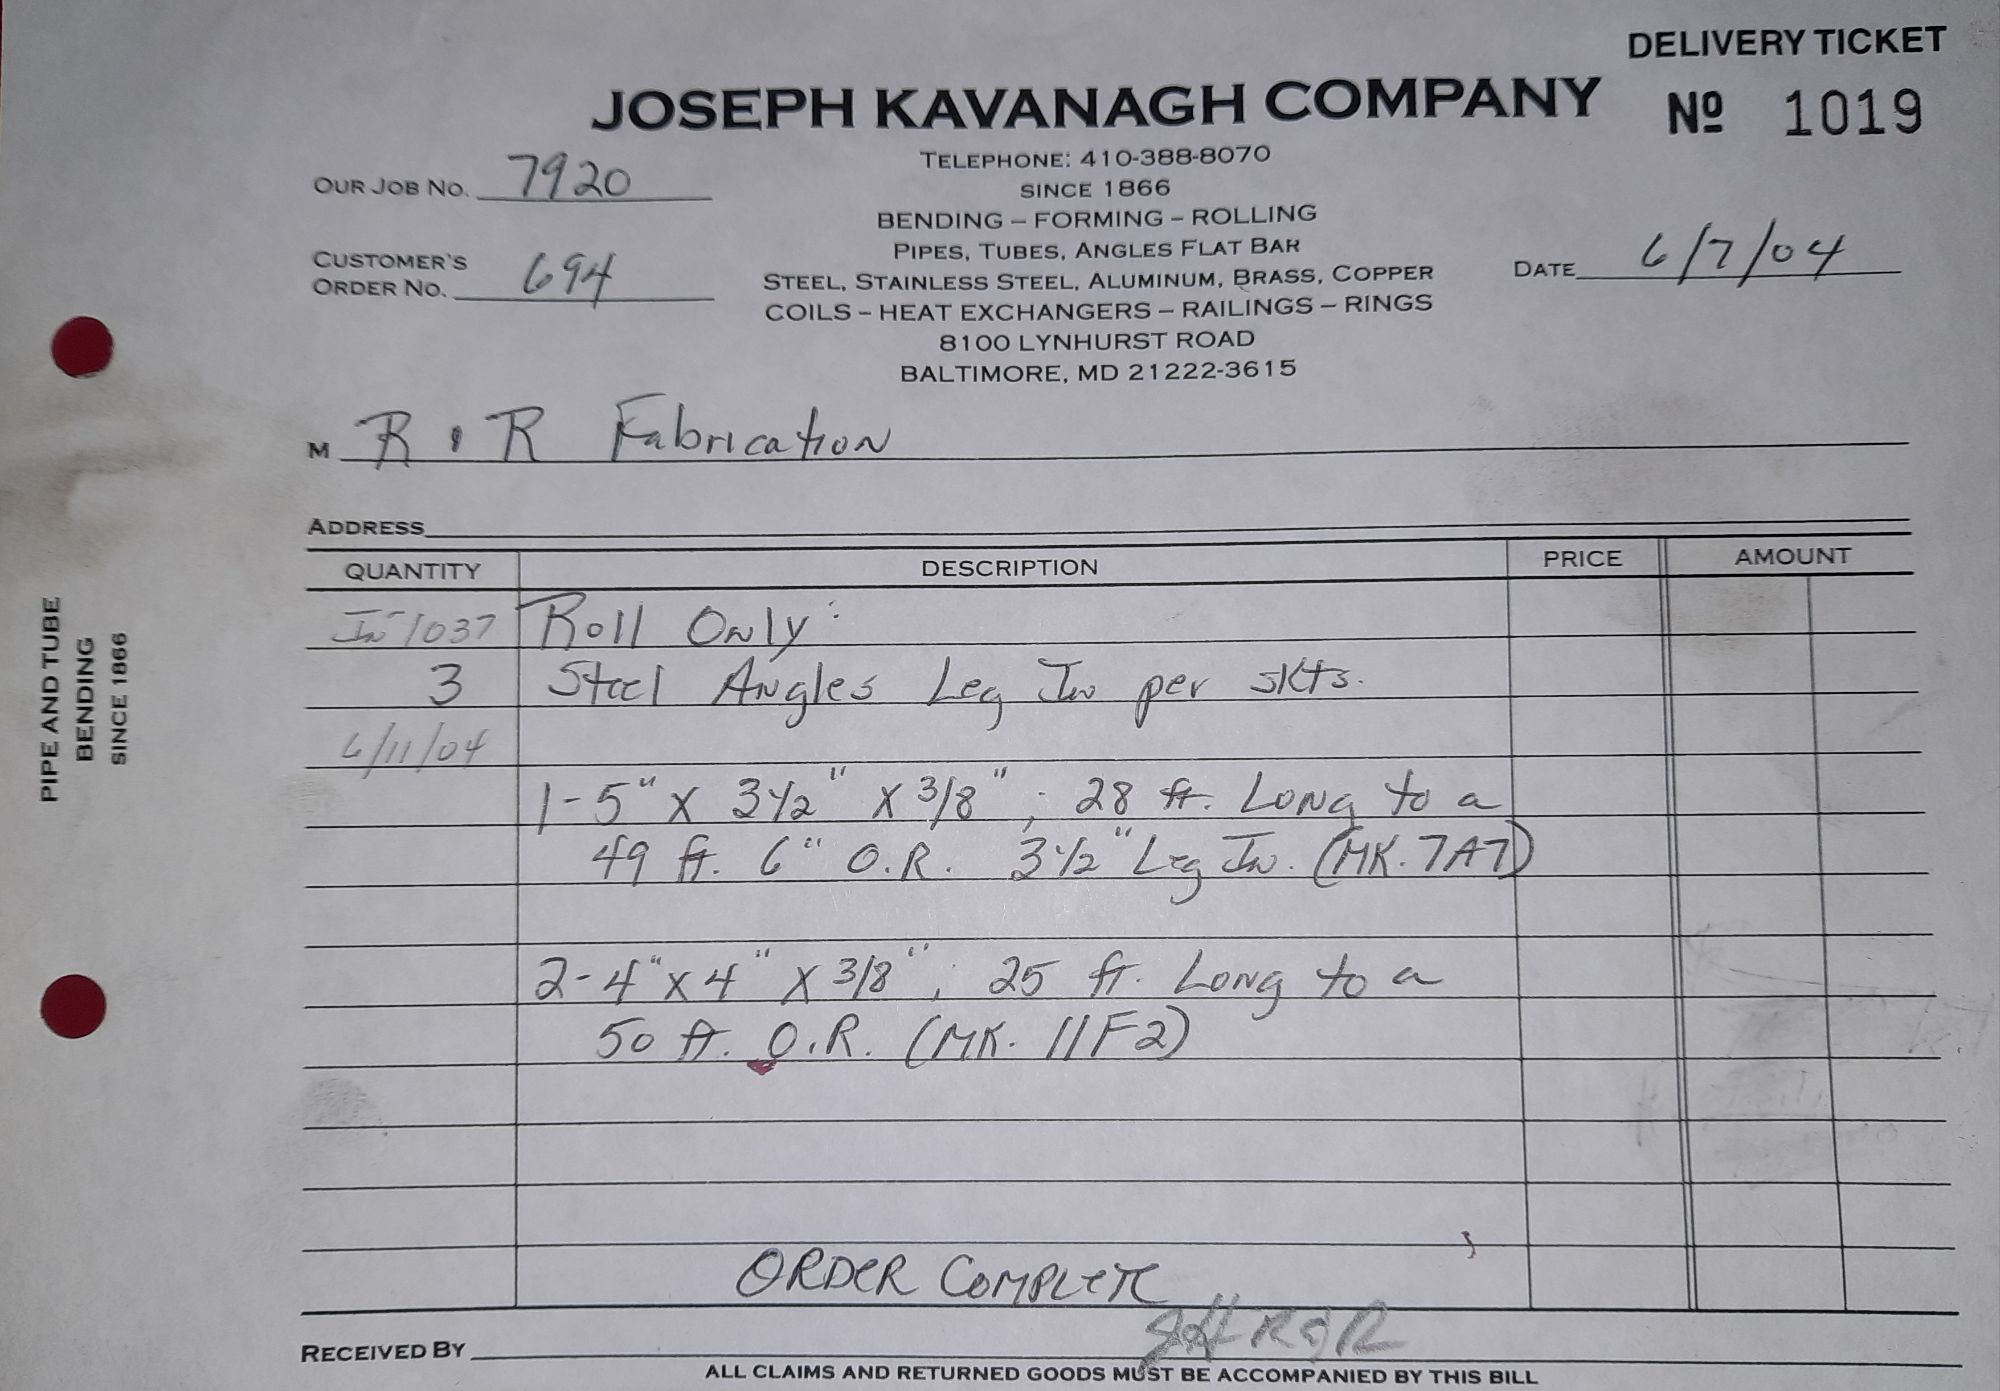 DELIVERY TICKET
JOSEPH KAVANAGH COMPANY
Nº 1019
TELEPHONE: 410-388-8070
SINCE 1866
BENDING – FORMING – ROLLING
PIPES, TUBES, ANGLES FLAT BAR
STEEL, STAINLESS STEEL, ALUMINUM, BRASS, COPPER
COILS – HEAT EXCHANGERS – RAILINGS – RINGS
8100 LYNHURST ROAD
BALTIMORE, MD 21222-3615
OUR JOB NO. 7920
CUSTOMER'S
ORDER NO. 694
DATE 6/7/04
M R & R Fabrication
ADDRESS
QUANTITY DESCRIPTION PRICE AMOUNT
In 1037 Roll Only:
3 Steel Angles Leg In per skts.
6/11/04
1-5" x 3 1/2" x 3/8", 28 ft. Long to a
49 ft. 6" O.R. 3 1/2" Leg In. (MK. 7A7)
2-4" x 4" x 3/8", 25 ft. Long to a
50 ft. O.R. (MK. 11F2)
ORDER COMPLETE
RECEIVED BY R & R
ALL CLAIMS AND RETURNED GOODS MUST BE ACCOMPANIED BY THIS BILL
PIPE AND TUBE
BENDING
SINCE 1866